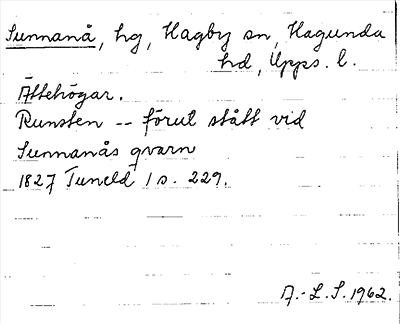 Sunnanå, hg, Hagby sn, Hagunda
hd, Upps. l.
Ättehögar.
Runsten -- förut stått vid
Sunnanås qvarn
1827 Tuneld 1 s. 229.
A.-L.S. 1962.